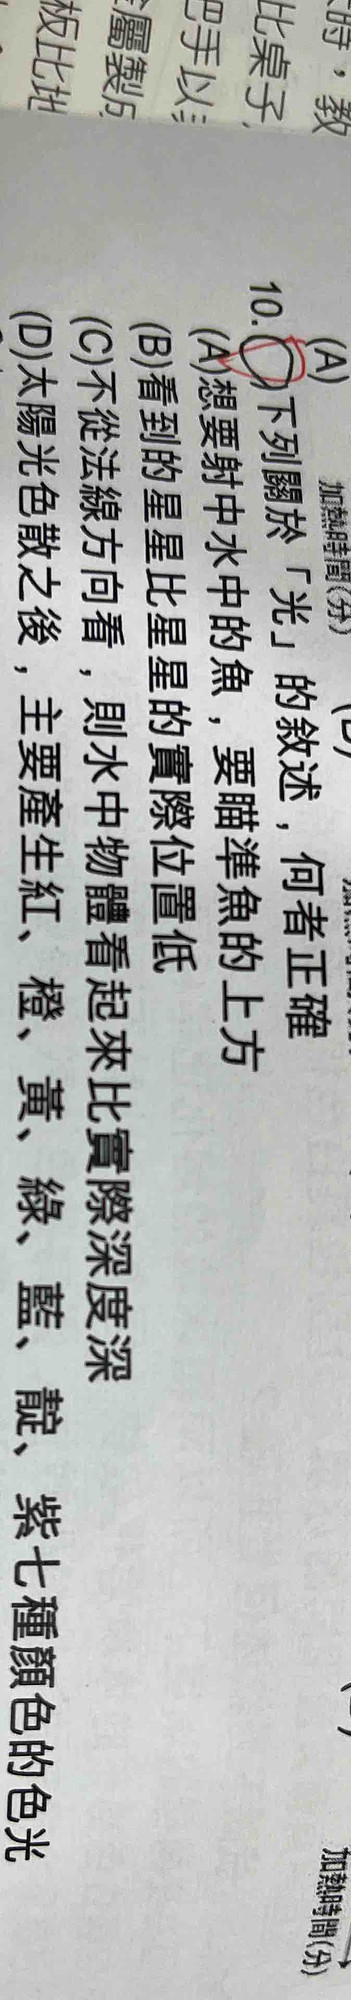 時，教
比桌子，
把手以
屬製
板比地
(A)
加熱時間(分)
加熱時間(分)
10.( )下列關於「光」的敘述，何者正確
(A)想要射中水中的魚，要瞄準魚的上方
(B)看到的星星比星星的實際位置低
(C)不從法線方向看，則水中物體看起來比實際深度深
(D)太陽光色散之後，主要產生紅、橙、黃、綠、藍、靛、紫七種顏色的色光